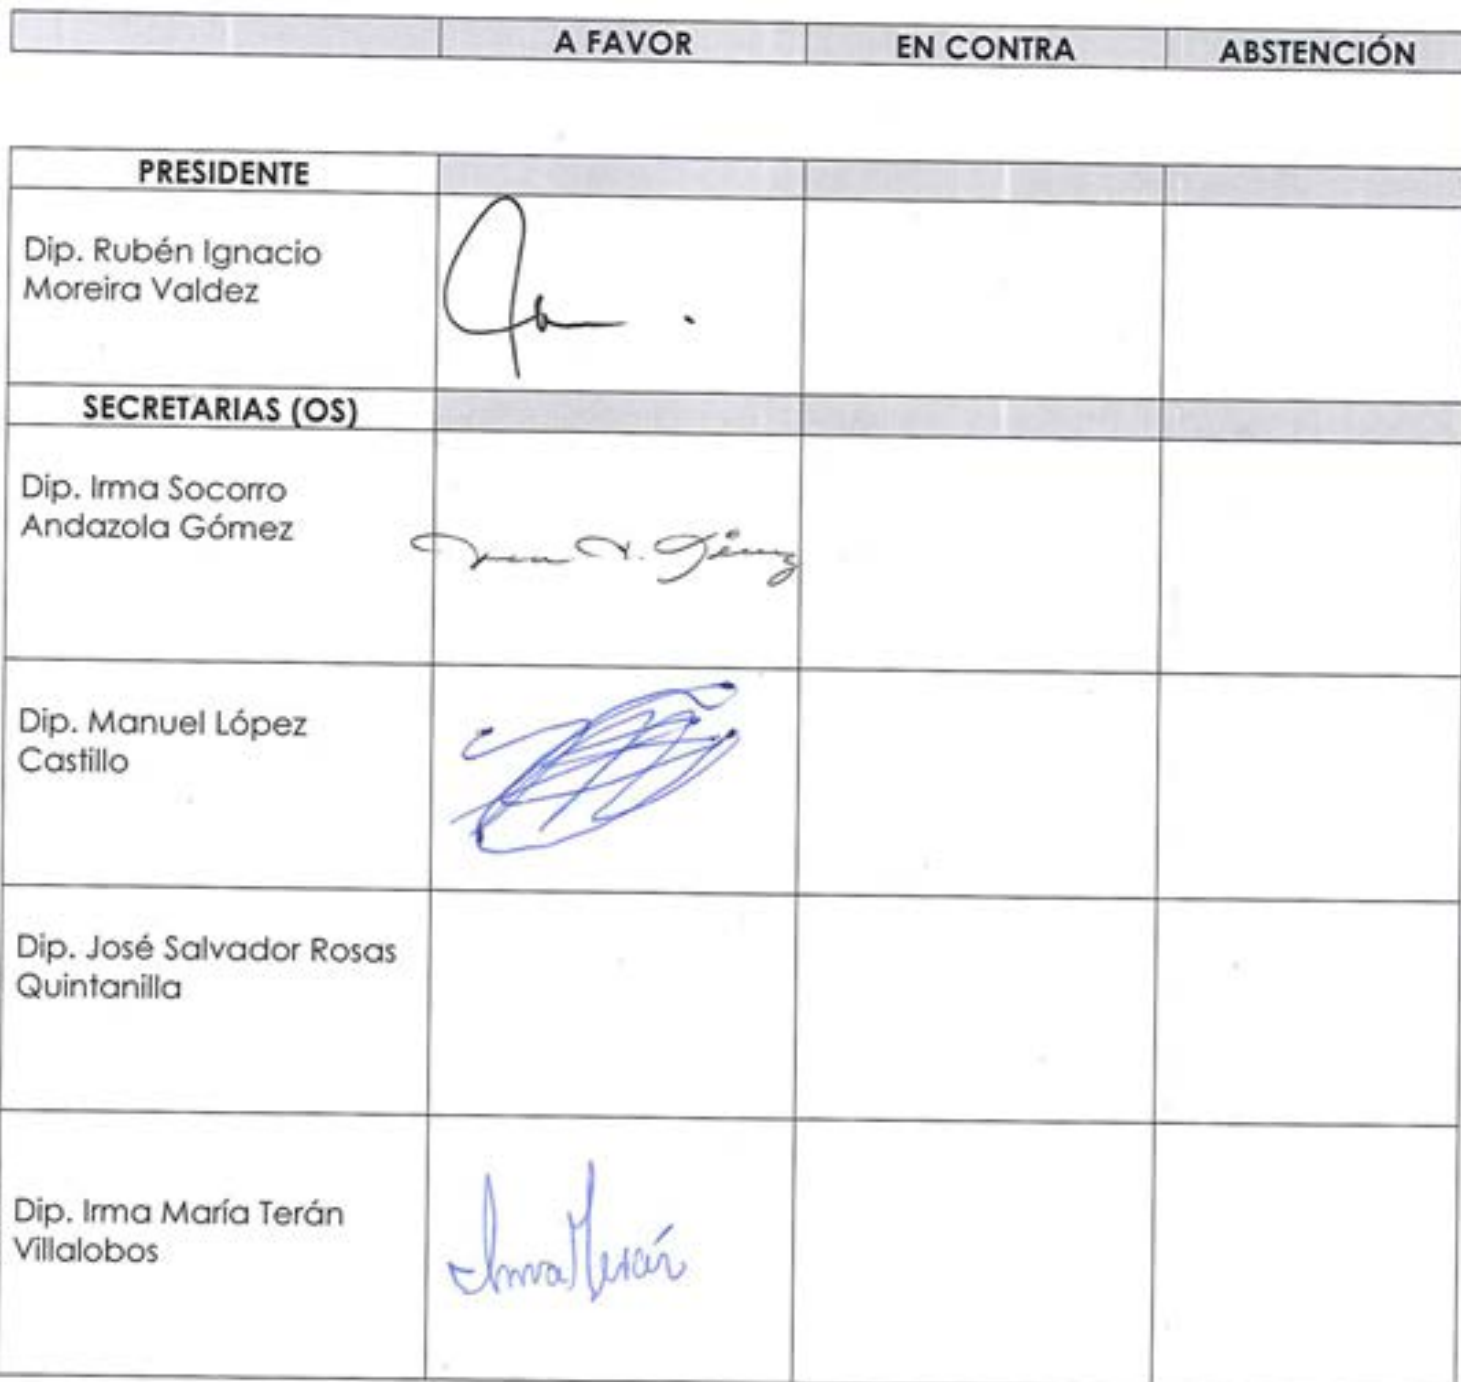 A FAVOR EN CONTRA ABSTENCIÓN
PRESIDENTE
Dip. Rubén Ignacio
Moreira Valdez
SECRETARIAS (OS)
Dip. Irma Socorro
Andazola Gómez
Dip. Manuel López
Castillo
Dip. José Salvador Rosas
Quintanilla
Dip. Irma María Terán
Villalobos
Irma Terán